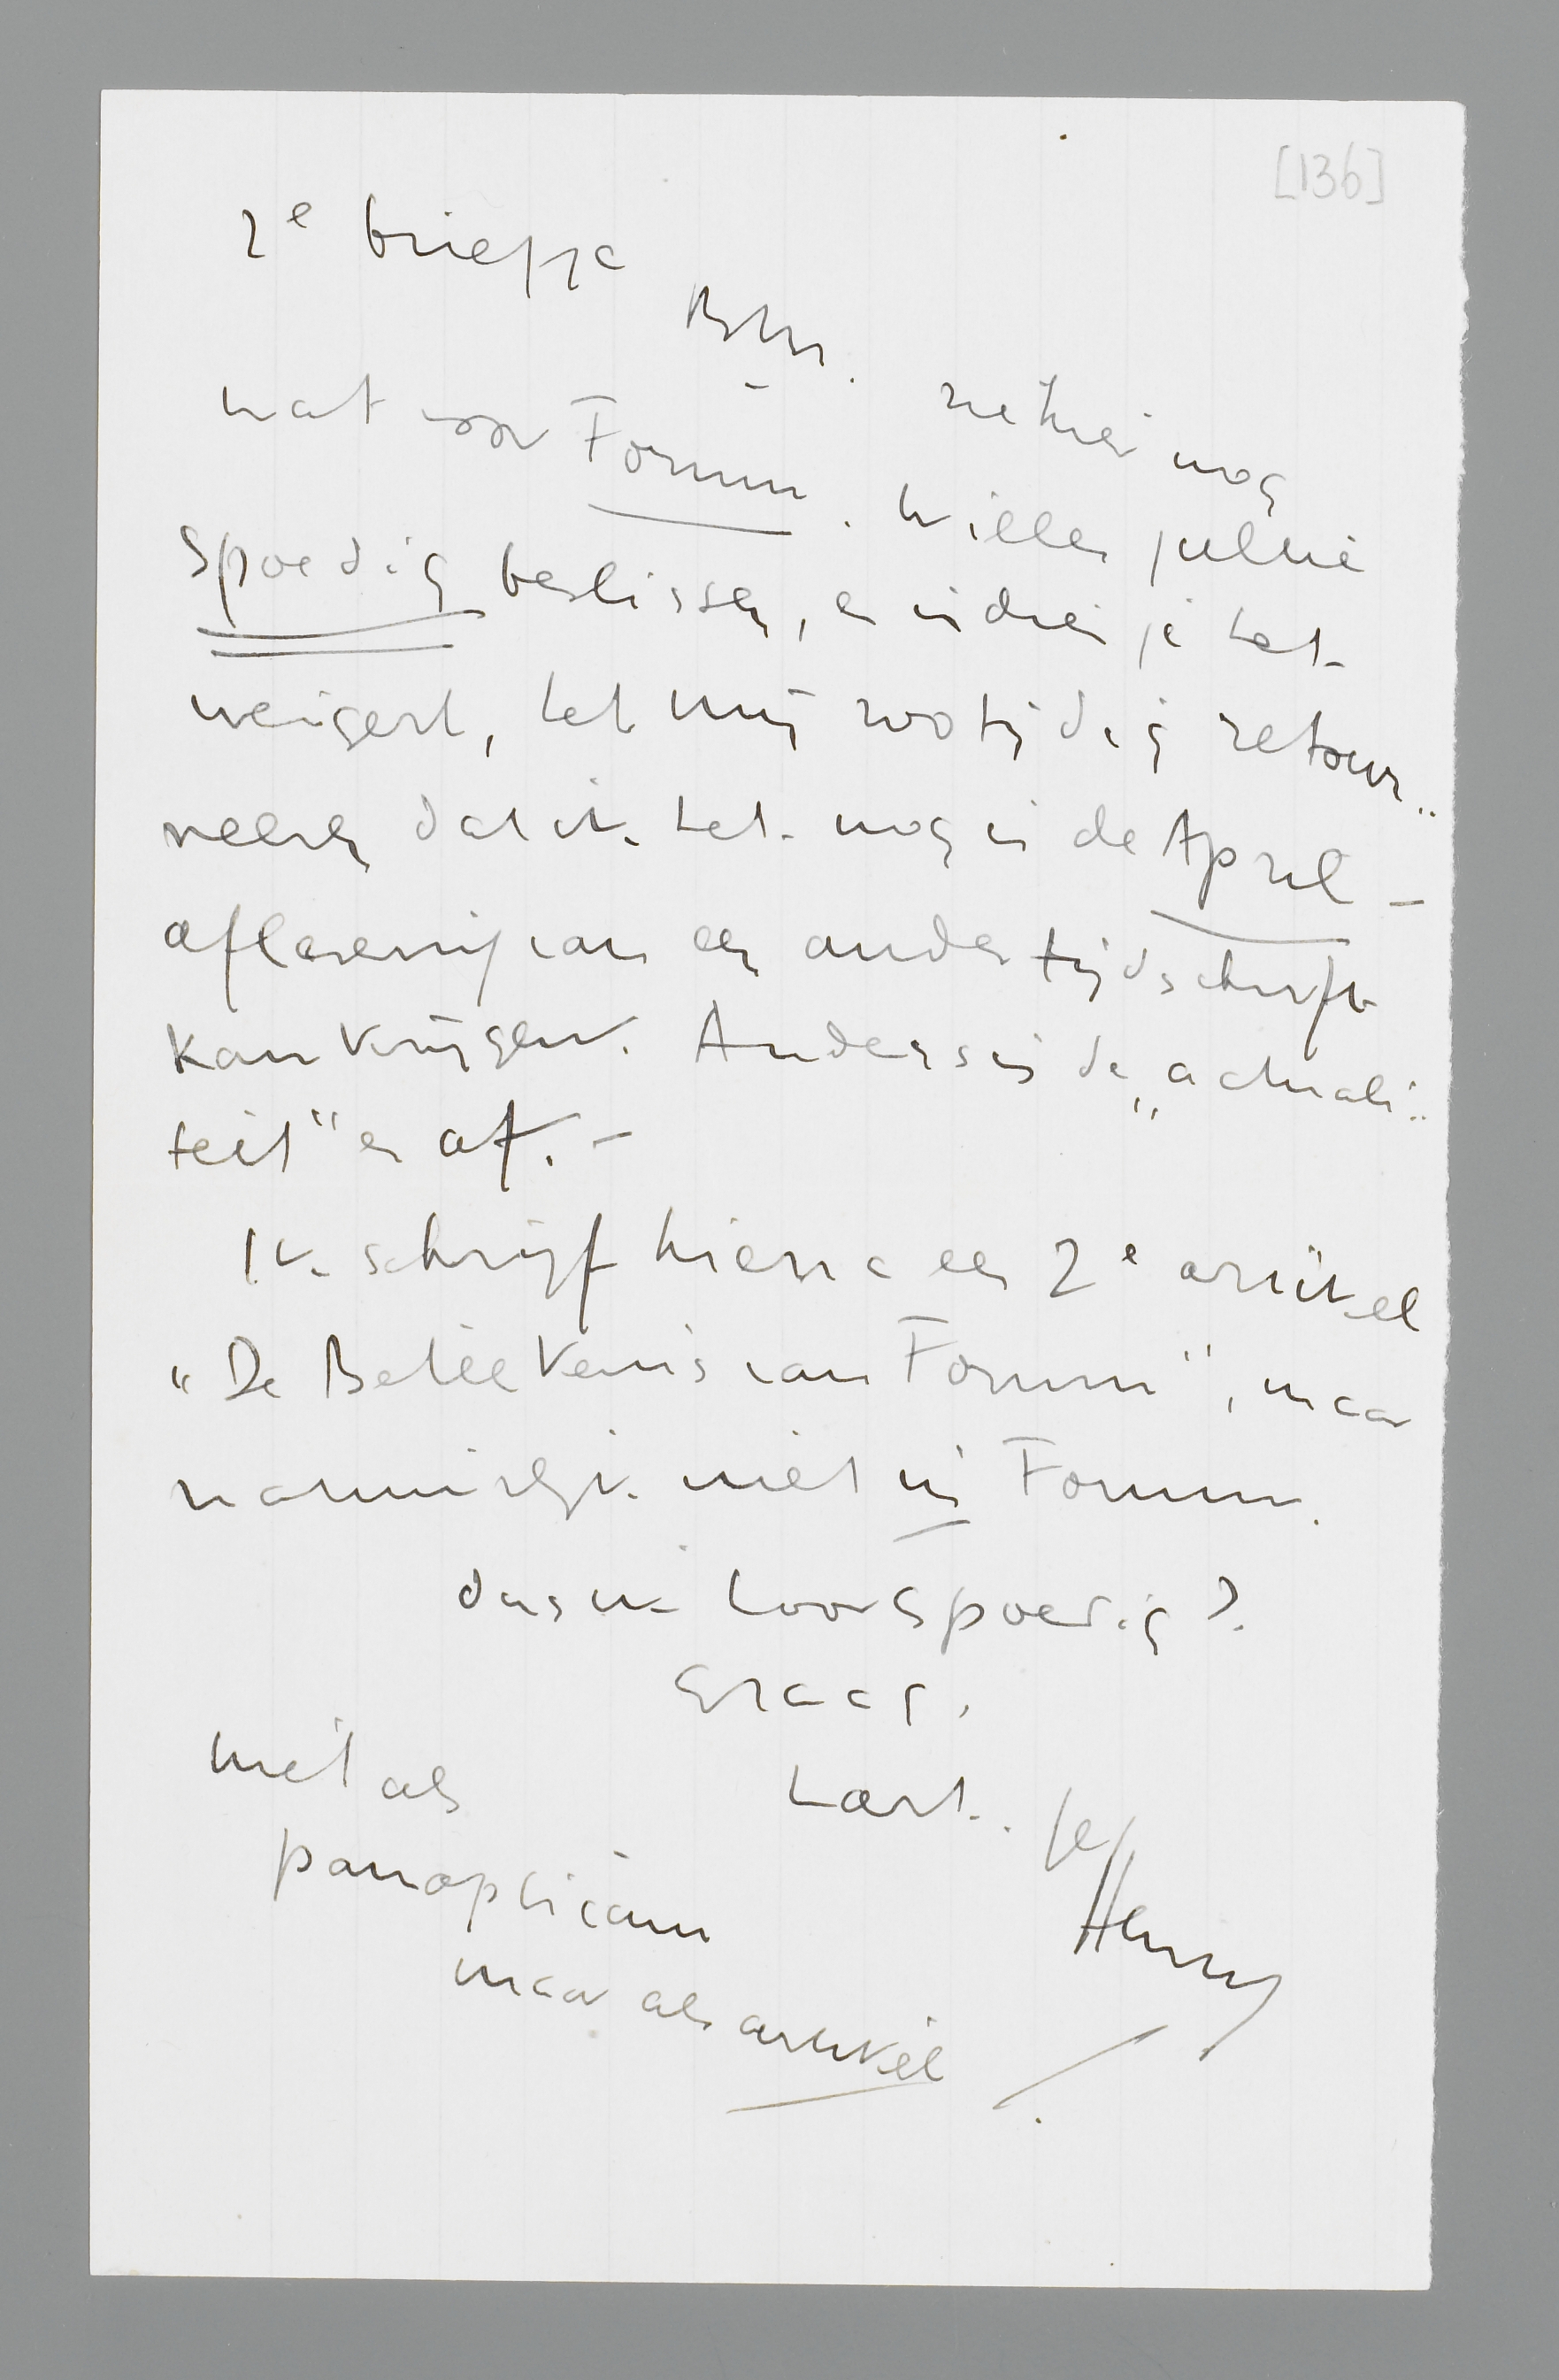 [136]
2e briefje
Bttr. zie hier nog
wat voor Forum. Willen jullie
spoedig beslissen, en indien je het
weigert, het mij zoo tijdig retour-
neeren dat ik het nog in de April-
aflevering van een ander tijdschrift
kan krijgen. Anders is de „actuali-
teit" er af. –
Ik schrijf hierna een 2e artikel
"De Beteekenis van Forum", maar
natuurlijk niet in Forum.
Dus ik hoor spoedig?
Graag.
Hart. gr.
Henny
niet als
panopticum
maar als artikel